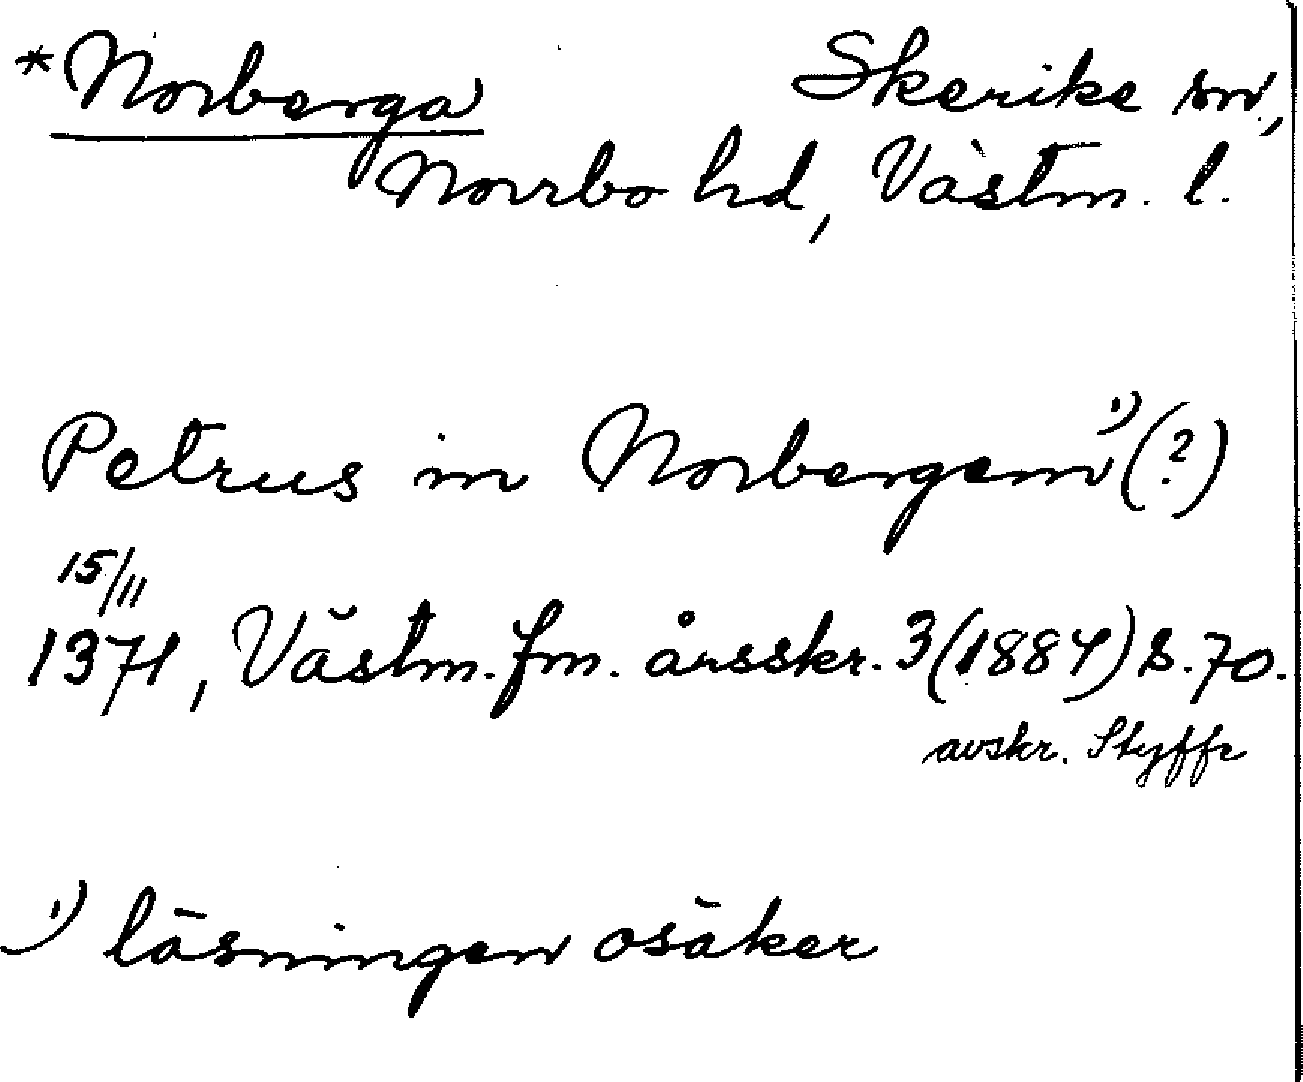 *Norberga Skerike sn,
Norrbo hd, Västm. l.
Petrus in Norbergem¹)(?)
15/11
1371, Västm. fm. årsskr. 3 (1884) s. 70.
avskr. Styffe
¹) läsningen osäker